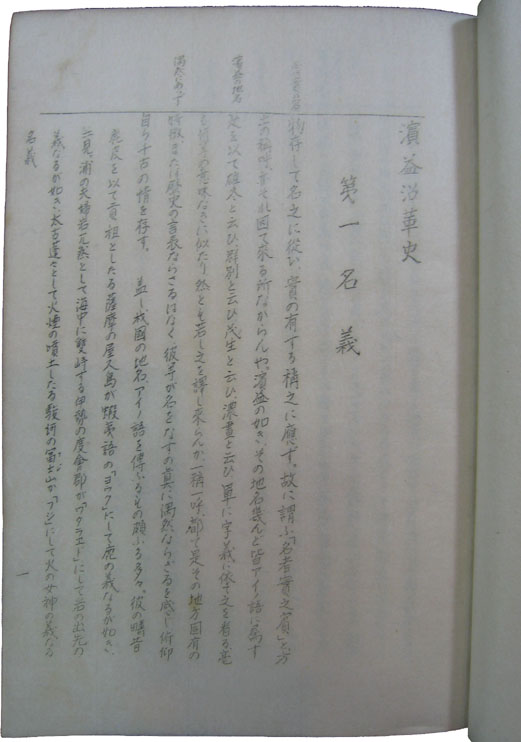 濵益沿革史
第一名義
物存して名之に従ひ、實の有する稱之に應ず。故に謂ふ「名者實之賓」と、方
土の稱呼、亦それ因て来る所なからんや、濵益の如き、その地名殆んど皆アイノ語に属す
是を以て雄冬と云ひ、群別と云ひ、茂生と云ひ、濃晝と云ひ、單に字義に依て之を看る、毫
も意味なきに似たり、然とも若し之を譯し来らんか、一稱一呼、都て是その地方固有の
特徴、または歴史の言表ならざるはなく、彼等が名をなすの真に偶然ならざるを感じ、俯仰
自ら千古の情を存す。 蓋し我國の地名、アイノ語を傳ふるもの頗ふる多々、彼の疇昔
鹿皮を以て貢祖としたる薩摩の屋久島が蝦夷語の「ヨック」にして鹿の義なるが如き、
二見浦の夫婦岩元然として海中に雙峙する伊勢の度會郡が「ワタラエド」にして岩の出先の
義なるが如き、太古蓬々として火煙の噴土したる駿河の富士山が「フジ」にして火の女神の義なる
名義
一